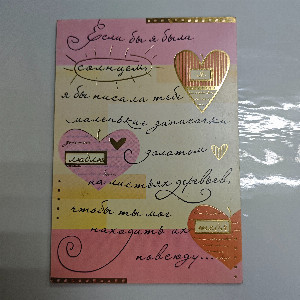 Если бы я была
солнцем,
я бы писала тебе
маленькие записочки
золотом
на листьях деревьев,
чтобы ты мог
находить их
повсюду...
люблю